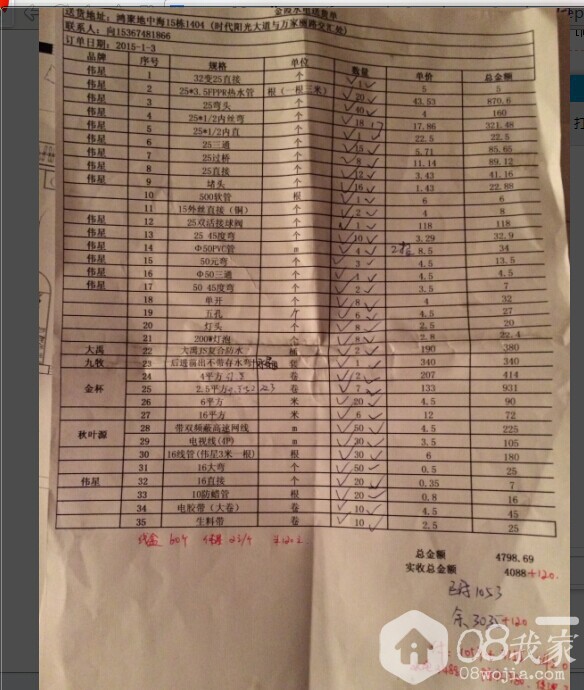 金陵水电送货单
送货地址：鸿聚地中海15栋1404（时代阳光大道与万家丽路交汇处）
联系人：向15367481866
订单日期：2015-1-3
品牌 序号 规格 单位 数量 单价 总金额
伟星 1 32变25直接 个 1 5 5
伟星 2 25*3.5FPPR热水管 根（一根三米） 20 43.53 870.6
伟星 3 25弯头 个 40 4 160
伟星 4 25*1/2内丝弯 个 18 17.86 321.48
伟星 5 25*1/2内直 个 1 22.5 22.5
伟星 6 25三通 个 15 5.71 85.65
伟星 7 25过桥 个 8 11.14 89.12
伟星 8 25直接 个 12 3.43 41.16
伟星 9 堵头 个 16 1.43 22.88
10 500软管 根 1 6 6
11 15外丝直接（铜） 个 2 4 8
伟星 12 25双活接球阀 个 1 118 118
伟星 13 25 45度弯 个 10 3.29 32.9
伟星 14 Φ50PVC管 m 4 8.5 34
伟星 15 50元弯 个 3 4.5 13.5
伟星 16 Φ50三通 个 1 4.5 4.5
伟星 17 50 45度弯 个 2 3.5 7
18 单开 个 8 4 32
19 五孔 个 6 4.5 27
20 灯头 个 8 2.5 20
21 200#灯泡 个 8 2.8 22.4
大禹 22 大禹JS复合防水 桶 2 190 380
九牧 23 后进前出不带存水弯 套 1 340 340
金杯 24 4平方 卷 2 207 414
25 2.5平方 卷 7 133 931
26 6平方 米 20 4.5 90
27 16平方 米 6 12 72
秋叶源 28 带双频蔽高速网线 m 50 4.5 225
29 电视线(4P) m 30 3.5 105
30 16线管(伟星3米一根) 根 30 6 180
伟星 31 16大弯 个 50 0.5 25
32 16直接 个 20 0.35 7
33 10防蜡管 根 20 0.8 16
34 电胶带（大卷） 卷 10 4.5 45
35 生料带 卷 10 2.5 25
总金额 4798.69
实收总金额 4088+120.
已付1053
余3035+120
08我家
08wojia.com